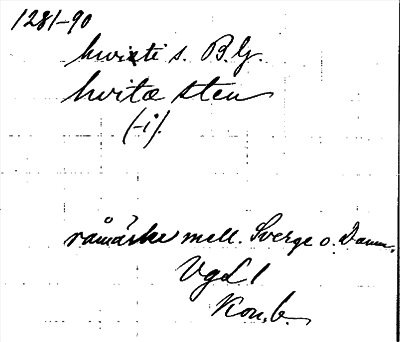 1281-90
hwiti s. B.G.
hvitæ sten
(-i).
råmärke mell. Sverge o. Danm.
VgL 1
Kon.b.